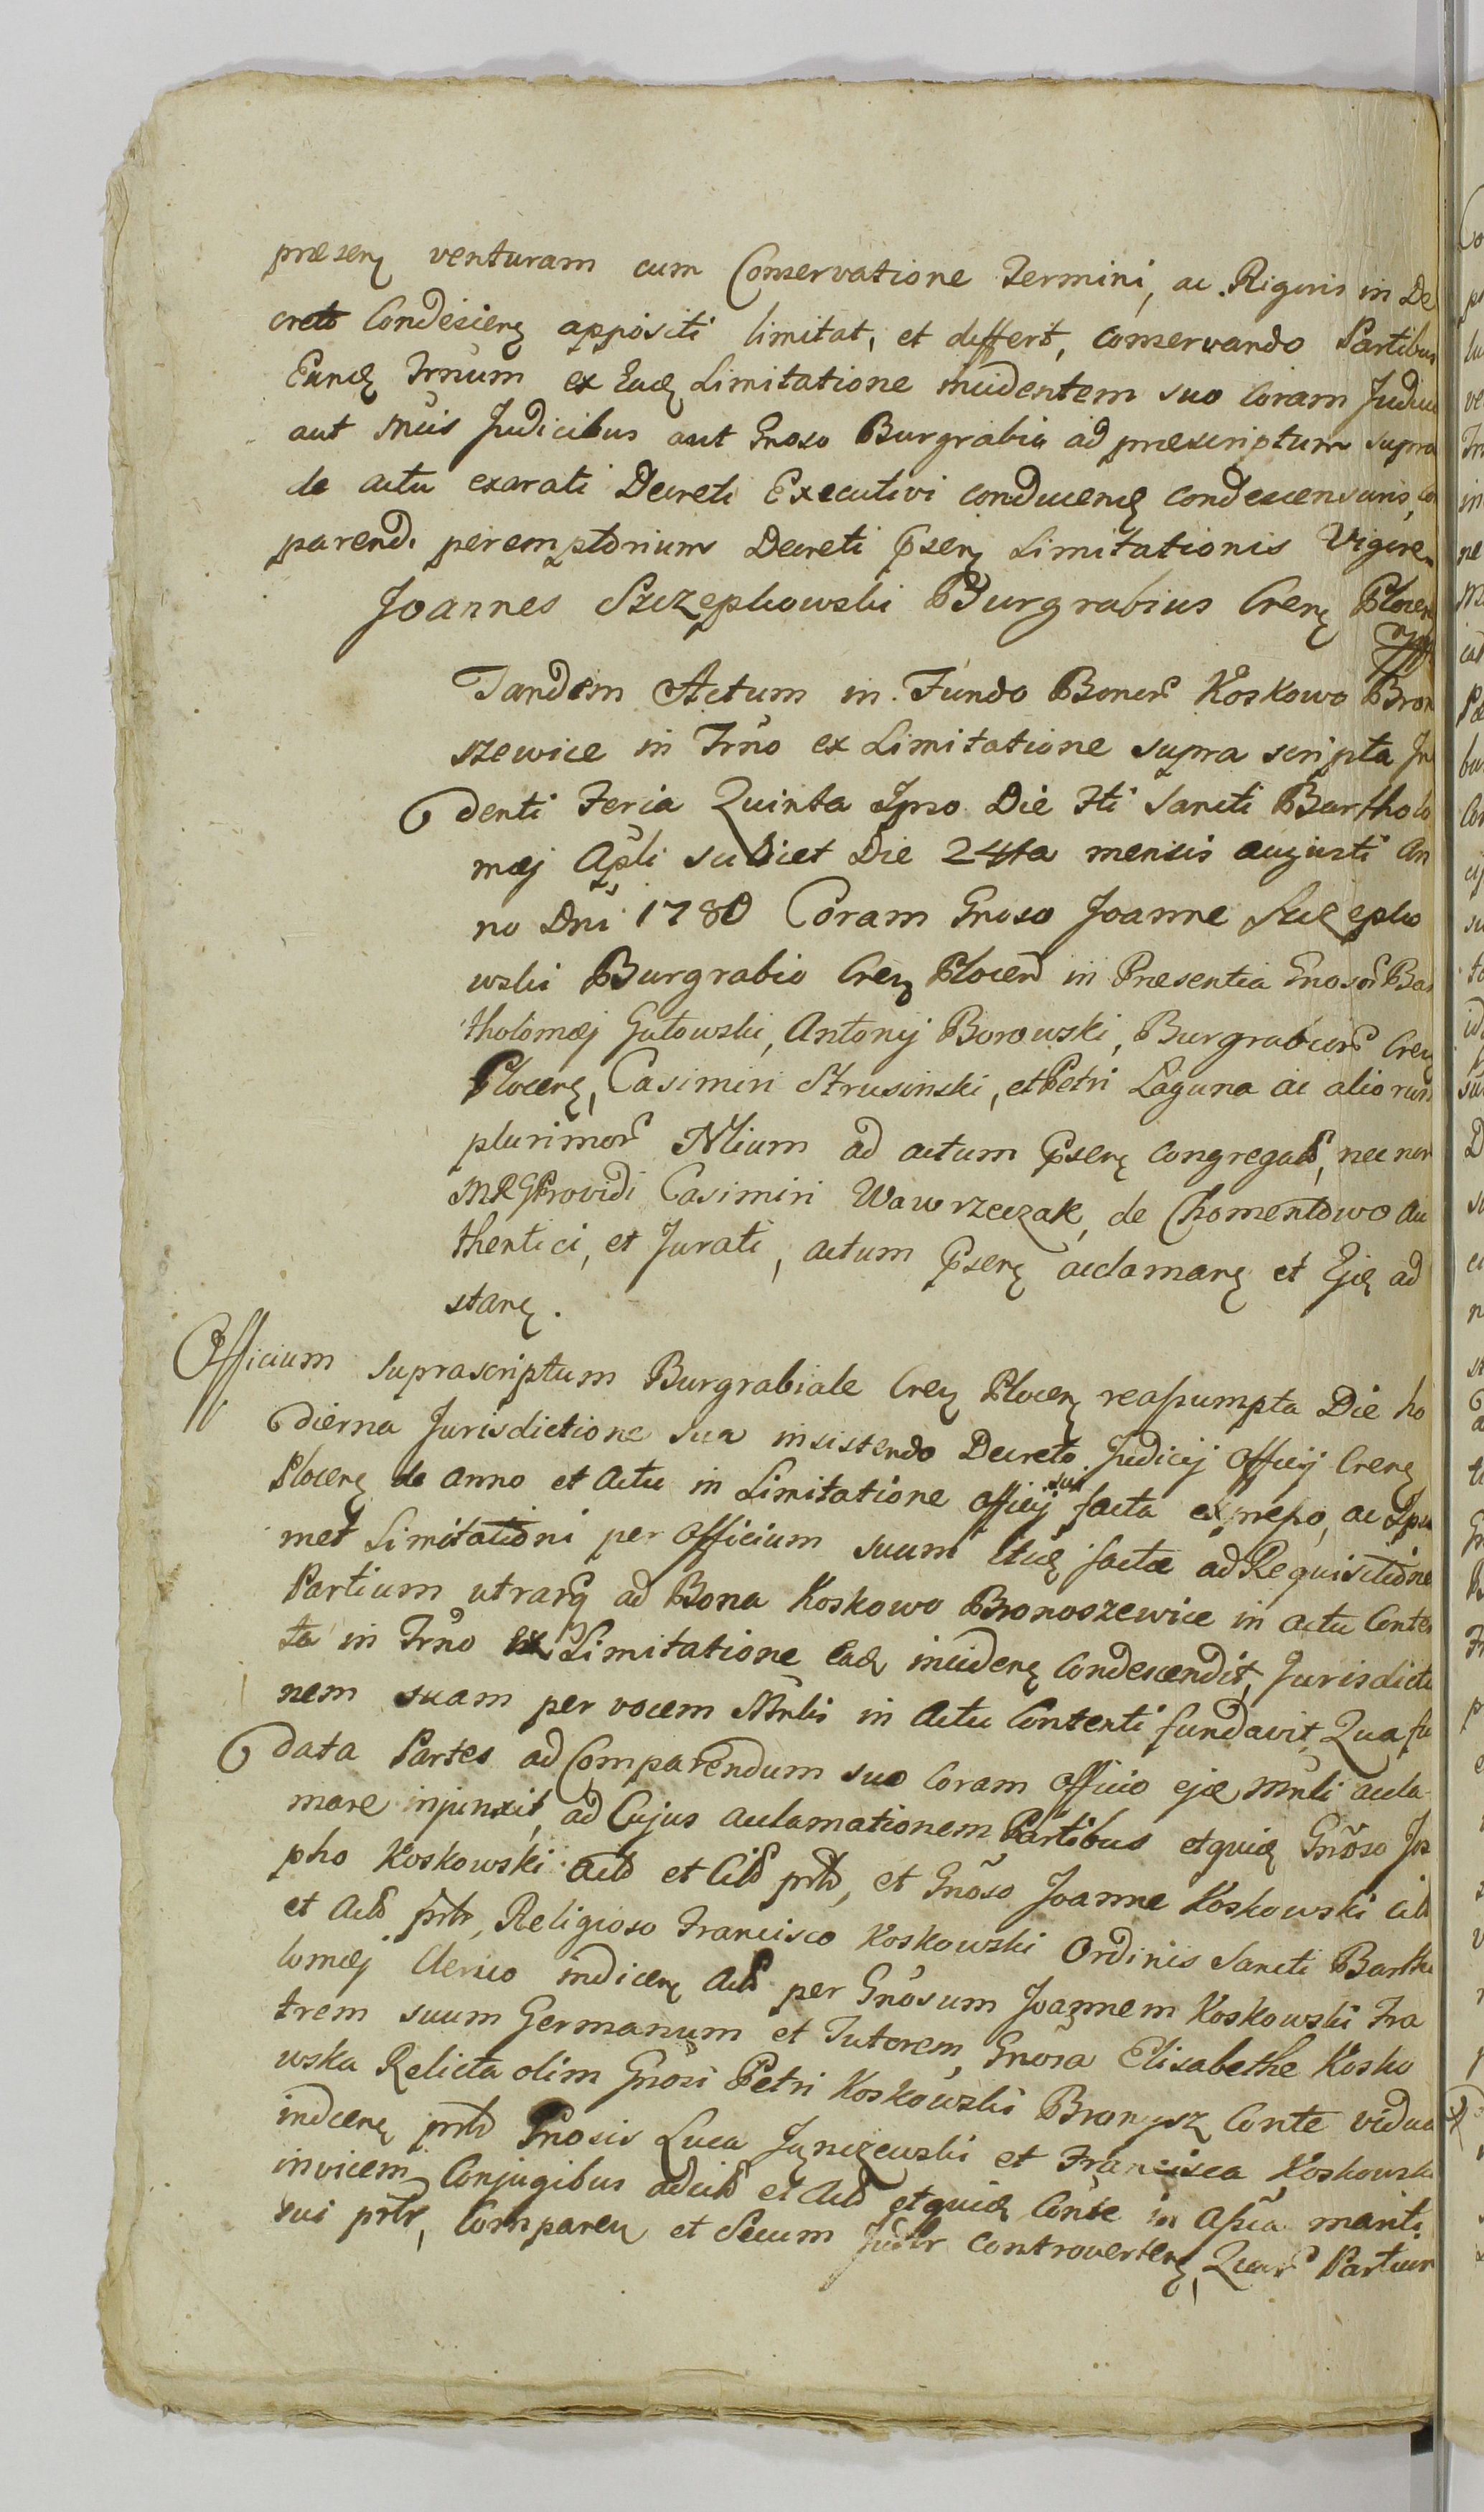 præsenꝫ venturam cum Conservatione Termini, ac Rigoris in De
creto Condescenꝫ appositi limitat, et differt, conservando Partibus
Eundꝫ Trnum ex Eadꝫ Limitatione incidentem suo Coram Judicio
aut suis Judicibus aut Gnoso Burgrabio ad præscriptum supra
de actu exarati Decreti Executivi conducenꝫ condescensuris, co
parend. peremptorium Decreti pserꝫ Limitationis Vigore
Joannes Szczepkowski Burgrabius Crenꝫ Plocenꝫ
Tandem Actum in Fundo Bonor Koskowo Bron
szewice in Trno ex Limitatione supra scripta In
denti Feria Quinta Ipso Die Fti Sancti Bartholo
mæj Apli scilicet Die 24ta mensis augusti An
no Dni 1780 Coram Gnoso Joanne Szczepko
wski Burgrabio Crenꝫ Plocen in Præsentia Gnosor Bar
tholomæj Gutowski, Antonij Borowski, Burgrabior Crenꝫ
Plocenꝫ, Casimiri Strusinski, et Petri Laguna ac aliorum
plurimor Nlium ad actum pserꝫ congregat, nec non
MRG Providi Casimiri Wawrzeczak, de Chomentowo Au
thentici, et Jurati, actum pserꝫ acclamanꝫ et Ejdꝫ ad
stanꝫ.
Officium suprascriptum Burgrabiale Crenꝫ Plocenꝫ reassumpta Die ho
dierna Jurisdictione sua insistendo Decreto Judicij Officij Crenꝫ
Plocenꝫ de anno et actu in Limitatione officij sui facta expresso, ac Ipsi
met Limitationi per Officium suum itidꝫ factæ ad Requisitione
Partium utrarq ad Bona Koskowo Bronoszewice in actu Conten
ta in Trno ex Limitatione Eadꝫ incidenꝫ condescendit, Jurisdictio
nem suam per vocem Mnlis in Actu Contenti fundavit, Qua fu
data Partes ad Comparendum suo Coram Officio ejdꝫ Mnli accla
mare injunxit, ad Cujus acclamationem Partibus etquidꝫ Gnoso Jos
pho Koskowski Actt et Citt prtr, et Gnoso Joanne Koskowski citt
et Actt prtr, Religioso Francisco Koskowski Ordinis Sancti Bartho
lomæj Clerico indicenꝫ Actt per Gnosum Joannem Koskowski Fra
trem suum Germanum et Tutorem, Gnosa Elisabethe Kosko
wska Relicta olim Gnosi Petri Koskowski Bronysz Conte vidua
indicenꝫ prtr Gnosis Luca Junczewski et Francisca Koskowska
invicem Conjugibus adcitt et Actt etquidꝫ Conte in Assia mariti
sui prtr, Comparenꝫ et Secum Judtr controvertenꝫ, Quar Partium